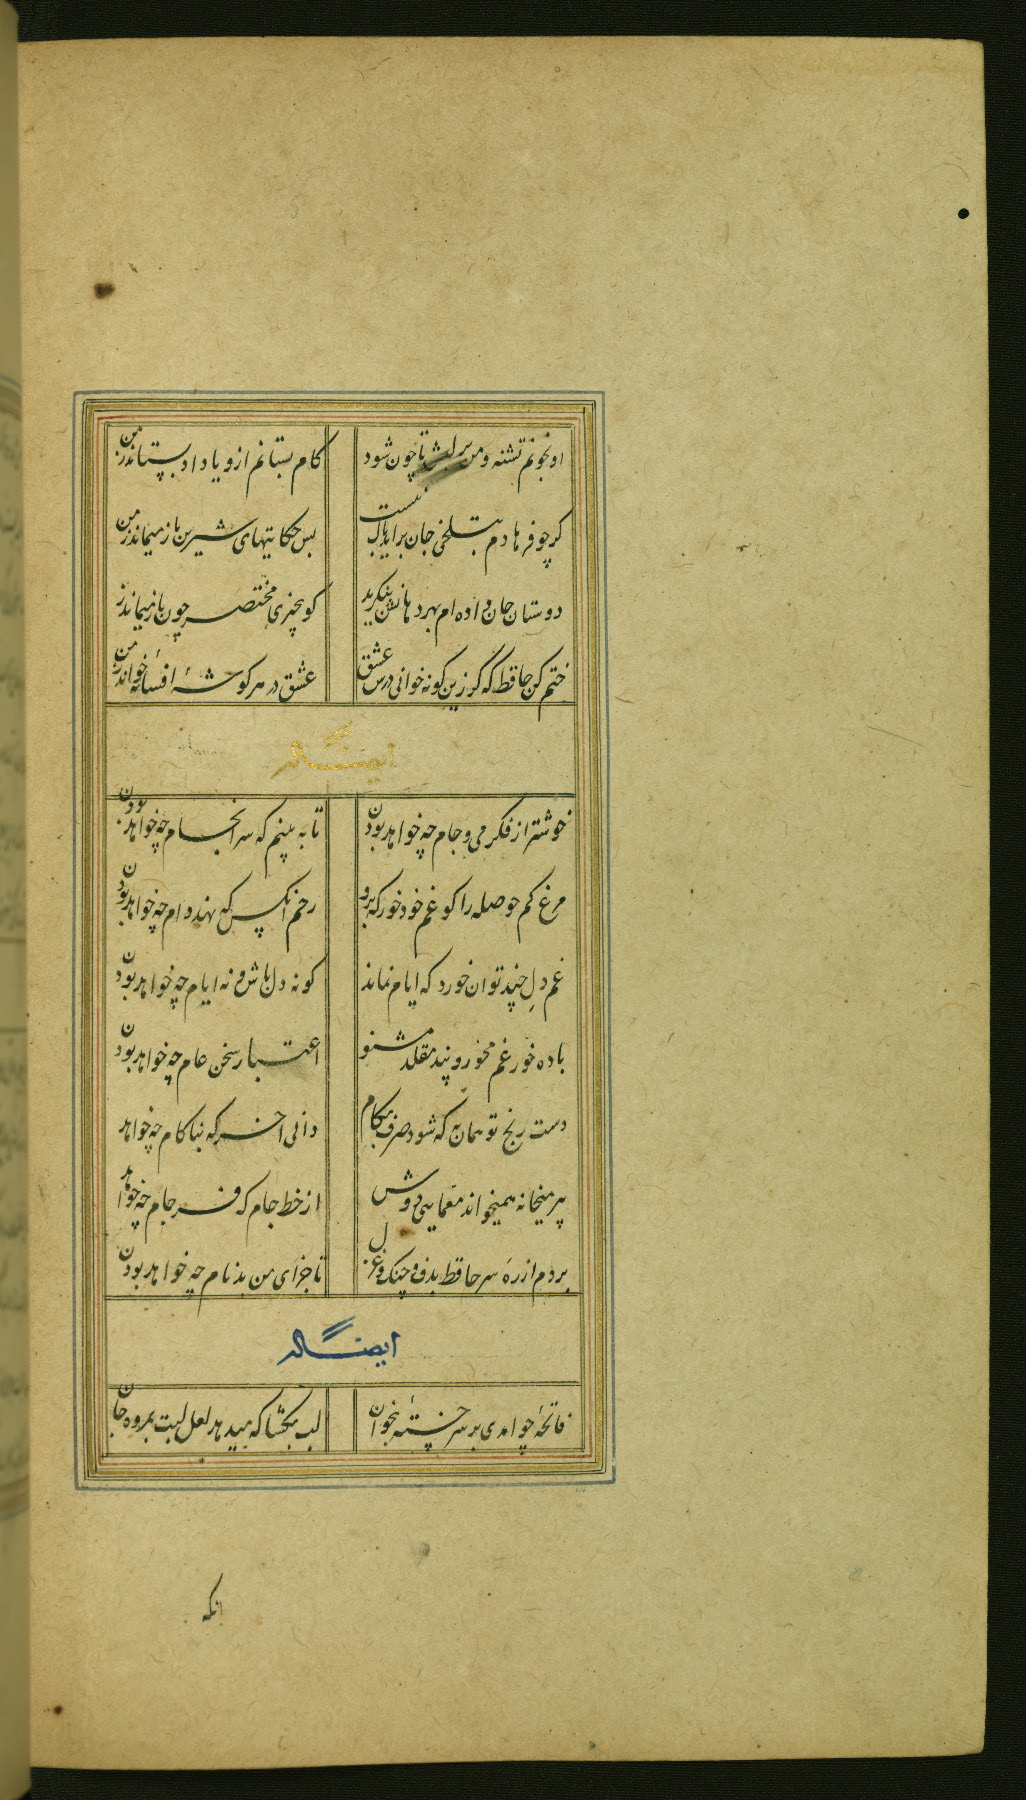 او بخونم تشنه و من بر لبش تا چون شود کام بستانم ازو یا داد بستاند ز من
گر چو فرهادم بتلخی جان براید باک نیست بس حکایتهای شیرین باز میماند ز من
دوستان جان داده‌ام بهر دهانش بنگرید کو بچیزی مختصر چون باز میماند ز من
ختم کن حافظ که گر زین گونه خوانی درس عشق عشق در هر گوشهٔ افسانهٔ خواند ز من
ایضاً له
خوشتر از فکر می و جام چه خواهد بودن تا به بینم که سرانجام چه خواهد بودن
مرغ کم حوصله را کو غم خود خور که برو رحم انکس که نهد دام چه خواهد بودن
غم دل چند توان خورد که ایام نماند کو نه دل باش و نه ایام چه خواهد بودن
باده خور غم مخور و پند مقلد مشنو اعتبار سخن عام چه خواهد بودن
دست رنج تو همان به که شود صرف بکام دانی اخر که بناکام چه خواهد
پیر میخانه همیخواند معمایی دوش از خط جام که فرجام چه خواهد
بردم از ره سر حافظ بدف و چنک و غزل تا جزای من بدنام چه خواهد بودن
ایضاً له
فاتحهٔ چو امدی بر سر خستهٔ بخوان لب بکشا که میدهد لعل لبت بمرده جان
انکه